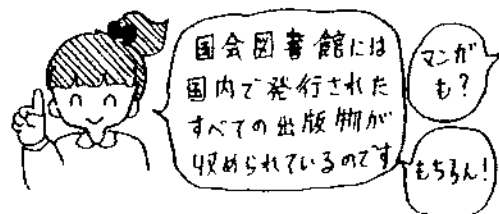 国会図書館には
国内で発行された
すべての出版物が
収められているのです
マンガ
も?
もちろん!